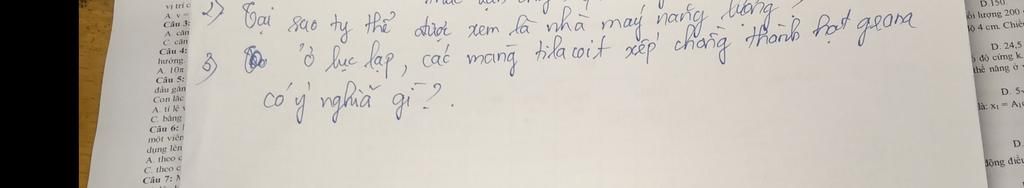 vị trí c
A. v =
Câu 3:
A. cân
C. cân
Câu 4:
hướng
A. 10π
Câu 5:
đầu gắn
Con lắc
A. tỉ lệ v
C. bằng
Câu 6:
một viên
dụng lên
A. theo c
C. theo c
Câu 7: M
2) Tại sao ty thể được xem là nhà máy năng lượng
3) ở lục lạp, các màng tilacoit xếp chồng thành hạt grana
có ý nghĩa gì?.
D. 150
ối lượng 200
ộ 4 cm. Chiề
D. 24,5
độ cứng k
thế năng ở
D. 5
là: x₁ = A₁
D.
động điều